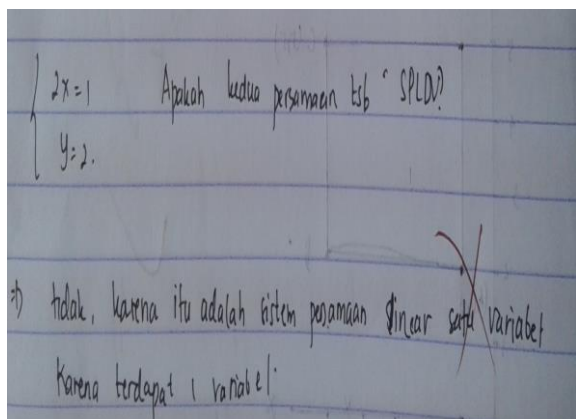 2x=1 Apakah kedua persamaan tsb "SPLDV?
y=2.
⇒ tidak, karena itu adalah sistem persamaan linear satu variabel
karena terdapat 1 variabel.